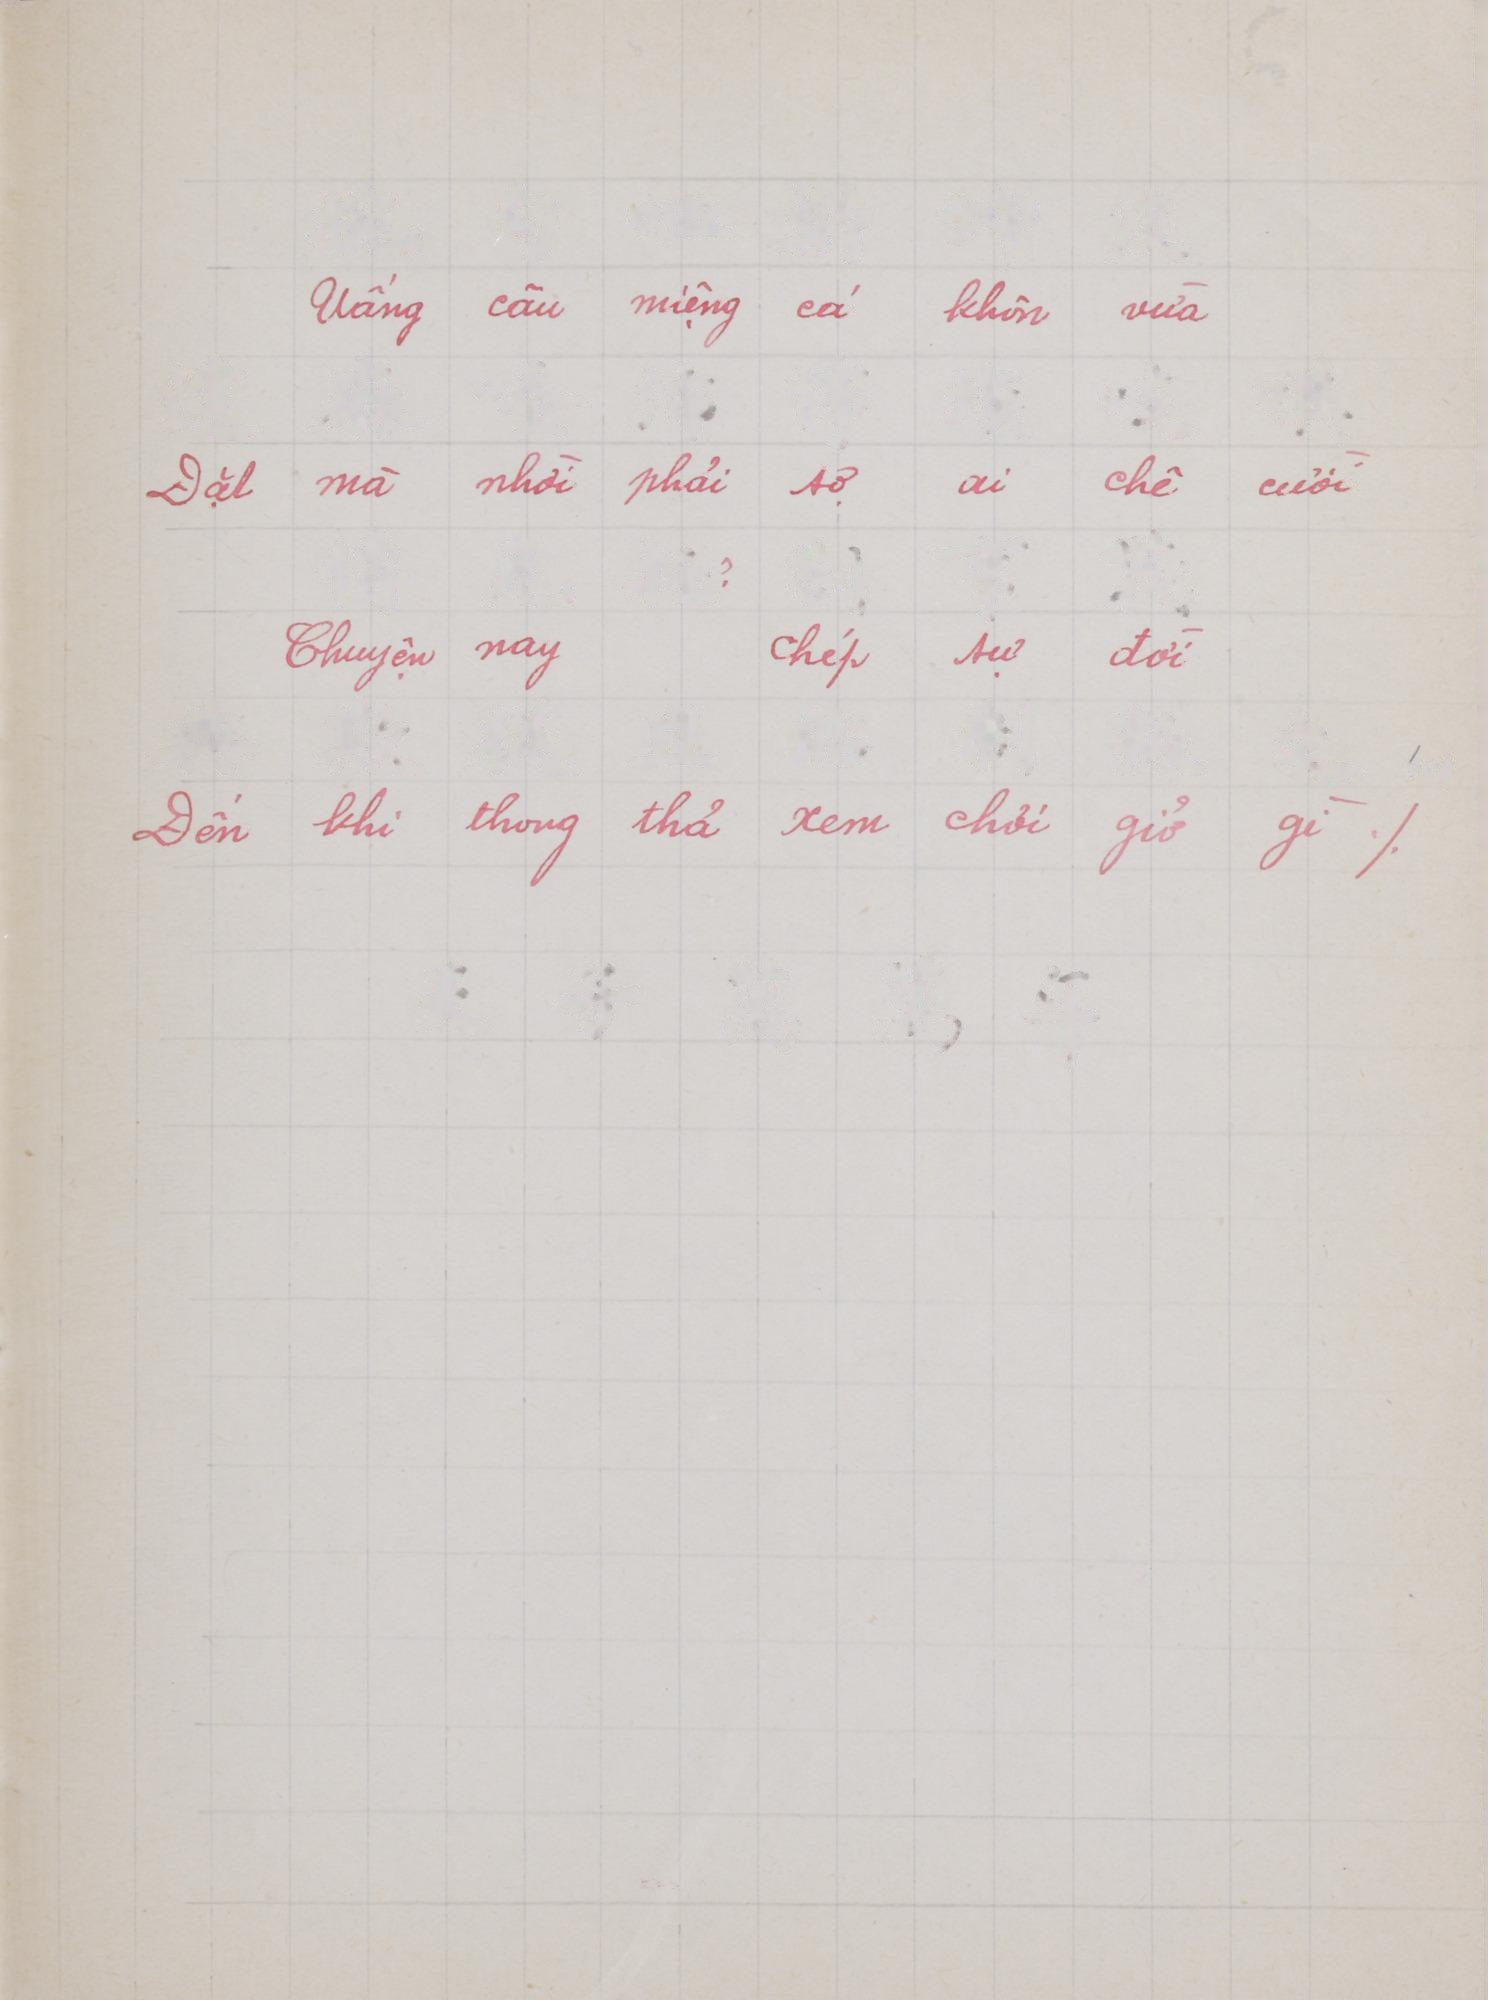 Uấng câu miệng cá khôn vừa
Đặt mà nhời phải sợ ai chê cười
?
Chuyện nay chép sự đời
Đến khi thong thả xem chơi giở gì ./.